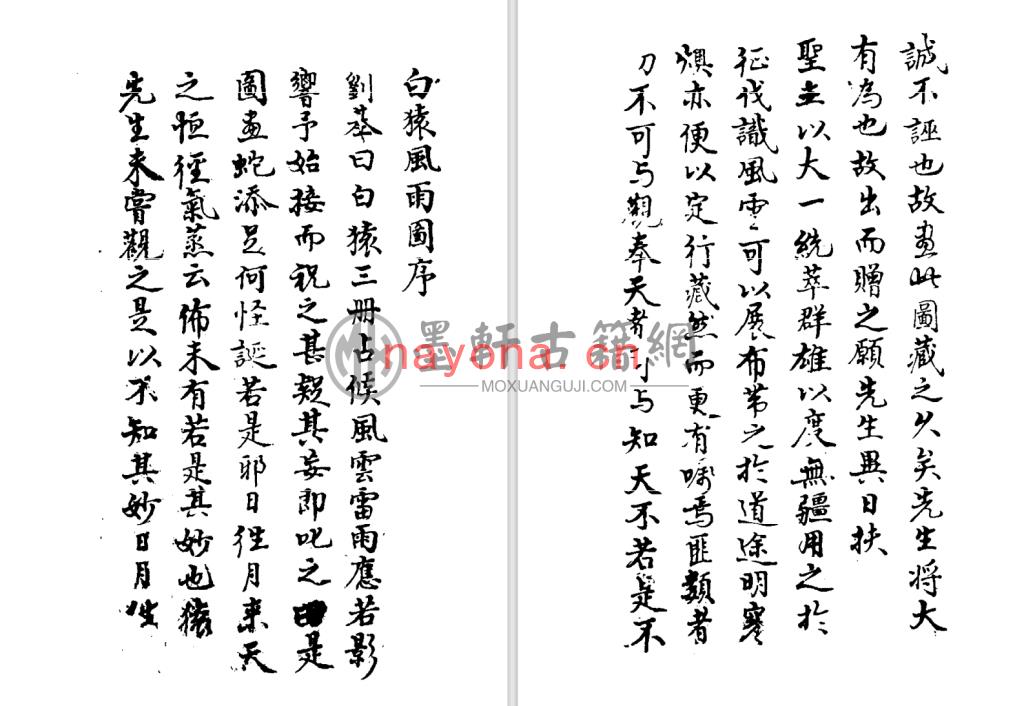 誠不誣也故畫此圖藏之久矣先生將大
有為也故出而贈之願先生異日扶
聖主以大一統萃群雄以度無疆用之於
征伐識風雲可以展布苐之於道途明寒
燠亦便以定行藏然而更有囑焉匪類者
刀不可与觀奉天者可与知天不若是不
白猿風雨圖序
劉基曰白猿三册占候風雲雷雨應若影
響予始接而視之甚疑其妄即叱之曰是
圖畫蛇添足何怪誕若是耶日徃月来天
之恒徑氣蒸云佈未有若是其妙也猿
先生未嘗觀之是以不知其妙日月
墨軒古籍網
nayona.cn
MOXUANGUJI.COM